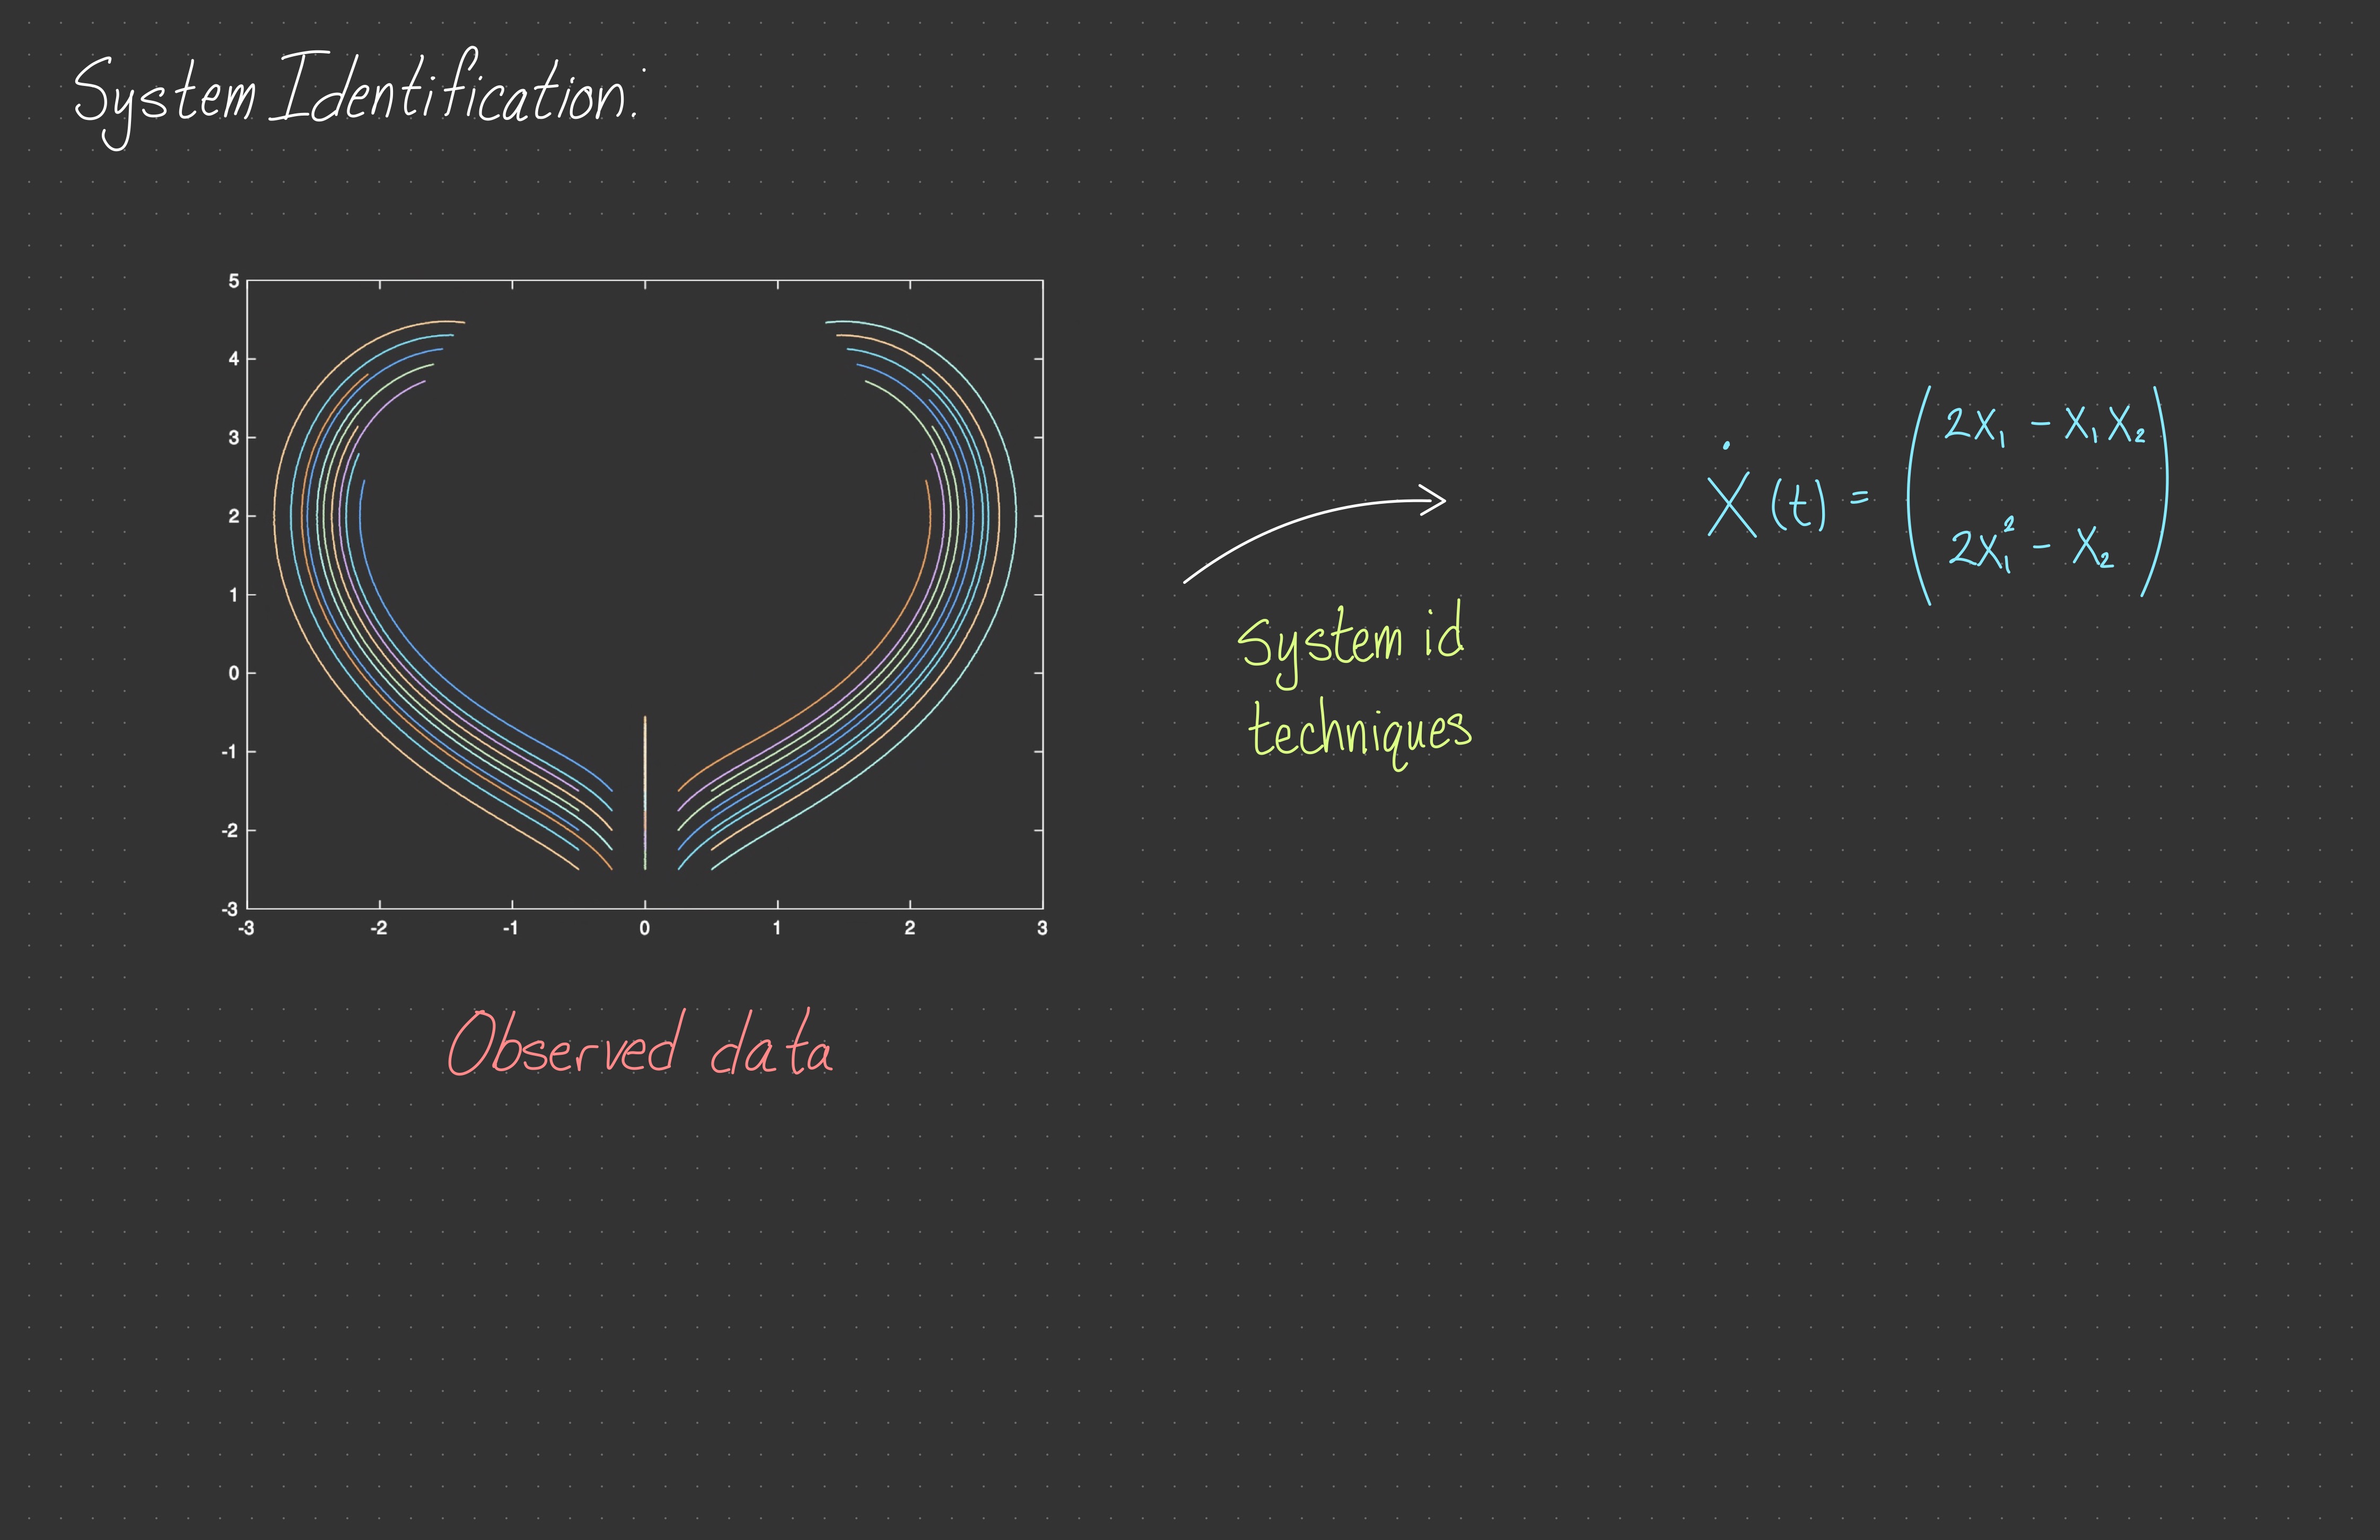 System Identification:
5
4
3
2
1
0
-1
-2
-3
-3 -2 -1 0 1 2 3
Observed data
System id
techniques
Ẋ(t) = ( 2X₁ - X₁X₂
2X₁² - X₂ )